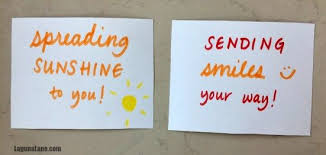 spreading
SUNSHINE
to you!
SENDING
smiles
your way!
LagunaLane.com